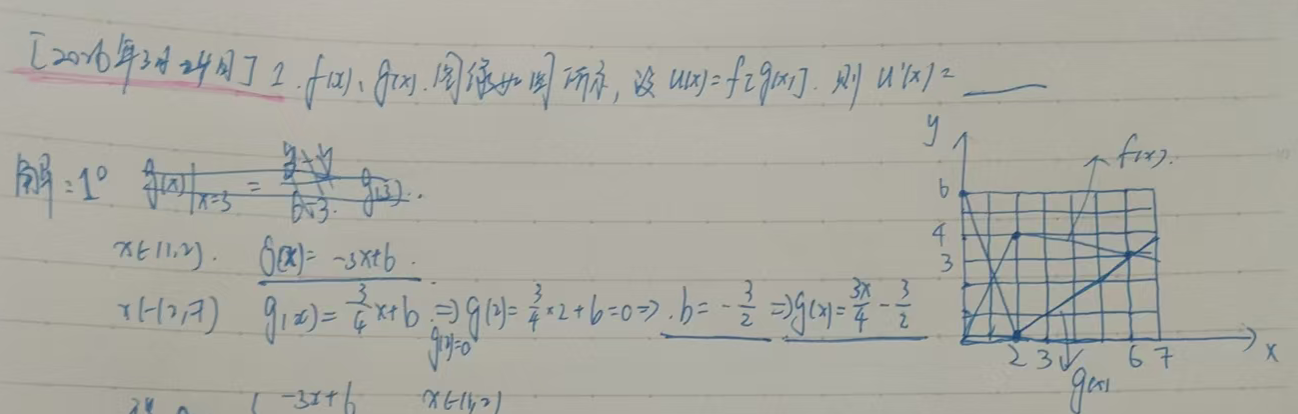 [2026年3月24日] 1. f(x)、g(x).图像如图所示, 设 u(x)=f[g(x)]. 则 u'(x)= ____
解:1° g(x)|x=3 = g(3)..
x∈(1,2). g(x)= -3x+6.
x∈(2,7) g(x)= 3/4 x+b ⇒ g(2)= 3/4 ×2+b=0 ⇒ b= -3/2 ⇒ g(x)= 3x/4 - 3/2
g(2)=0
-3x+6 x∈(1,2)
y
f(x).
6
4
3
2 3 6 7 x
g(x)